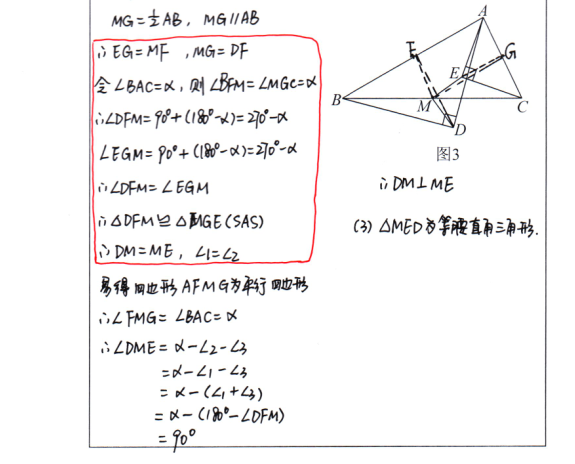 MG=½AB, MG∥AB
∴EG=MF ,MG=DF
令∠BAC=α,则∠BFM=∠MGC=α
∴∠DFM=90°+(180°-α)=270°-α
∠EGM=90°+(180°-α)=270°-α
∴∠DFM=∠EGM
∴△DFM≌△MGE(SAS)
∴DM=ME, ∠1=∠2
易得四边形AFMG为平行四边形
∴∠FMG=∠BAC=α
∴∠DME=α-∠2-∠3
=α-∠1-∠3
=α-(∠1+∠3)
=α-(180°-∠DFM)
=90°
A
F
G
E
B
M
C
D
图3
∴DM⊥ME
(3) △MED为等腰直角三角形.